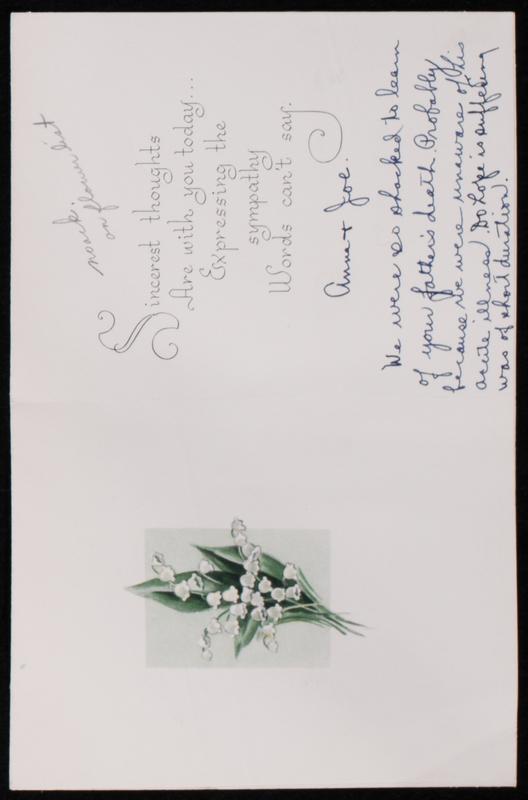 on flower list
Sincerest thoughts
Are with you today...
Expressing the
sympathy
Words can't say.
Anna + Joe.
We were so shocked to learn
of your father's death. Probably
because we were unaware of his
acute illness. Do hope is suffering
was of short duration.